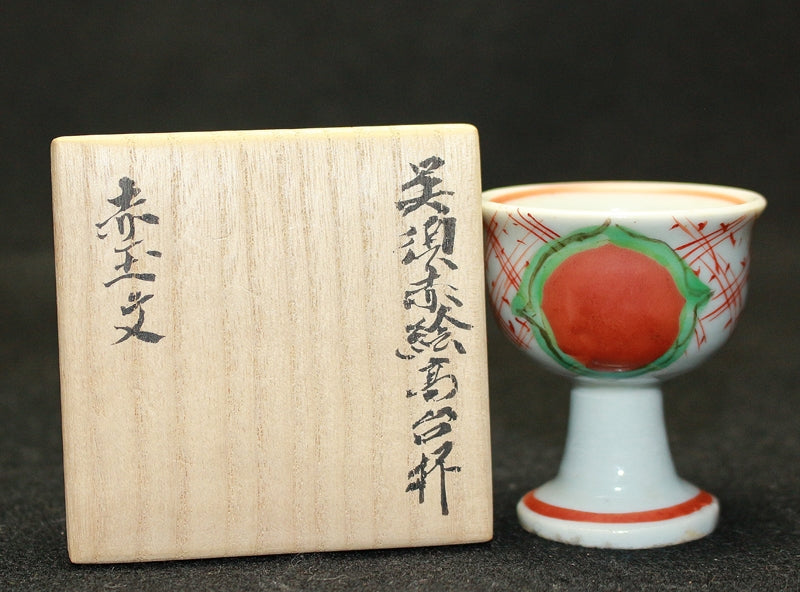 呉須赤絵高台杯
赤玉文